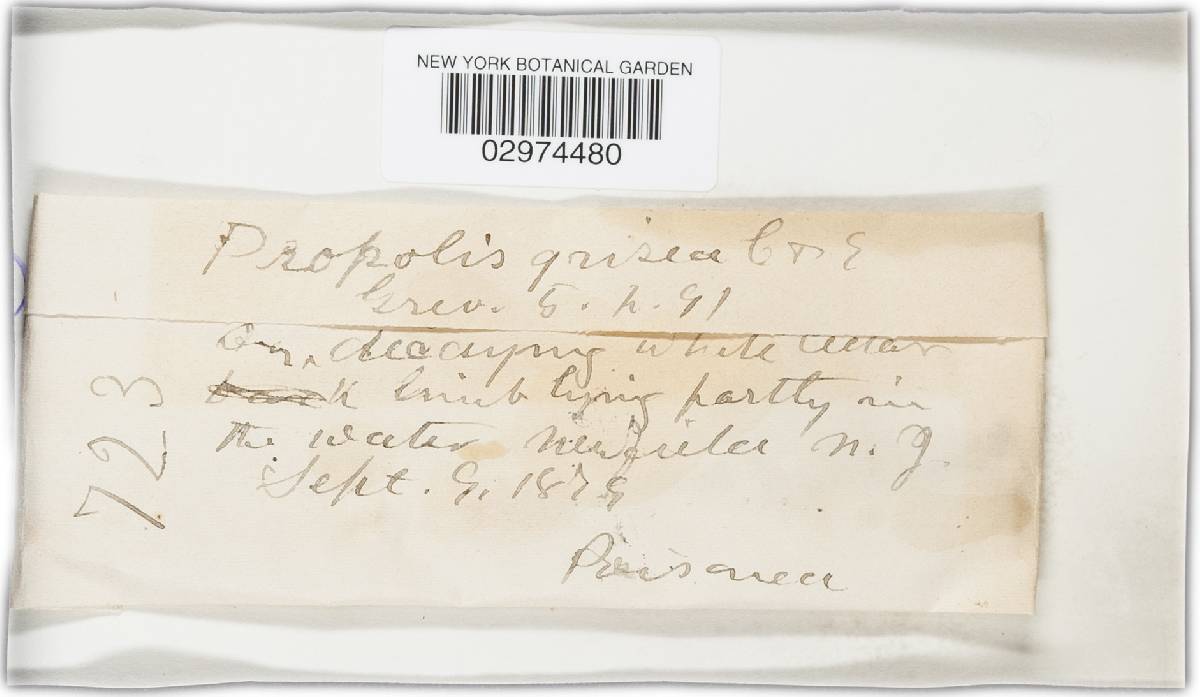 NEW YORK BOTANICAL GARDEN
02974480
Propolis grisea C & E
Grev. 5. h. 91
On decaying White Cedar
limb lying partly in
the water Newfield N. J.
Sept. 9. 1875
723